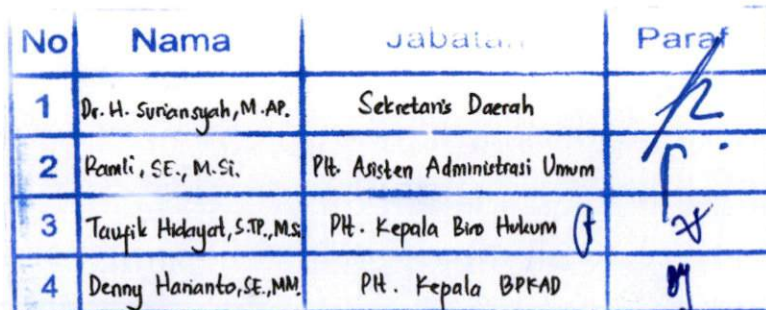 No Nama Jabatan Paraf
1 Dr. H. Suriansyah, M.AP. Sekretaris Daerah
2 Ramli, SE., M.Si. Plt. Asisten Administrasi Umum
3 Taufik Hidayat, S.TP., M.Si Plt. Kepala Biro Hukum
4 Denny Harianto, SE., MM. Plt. Kepala BPKAD